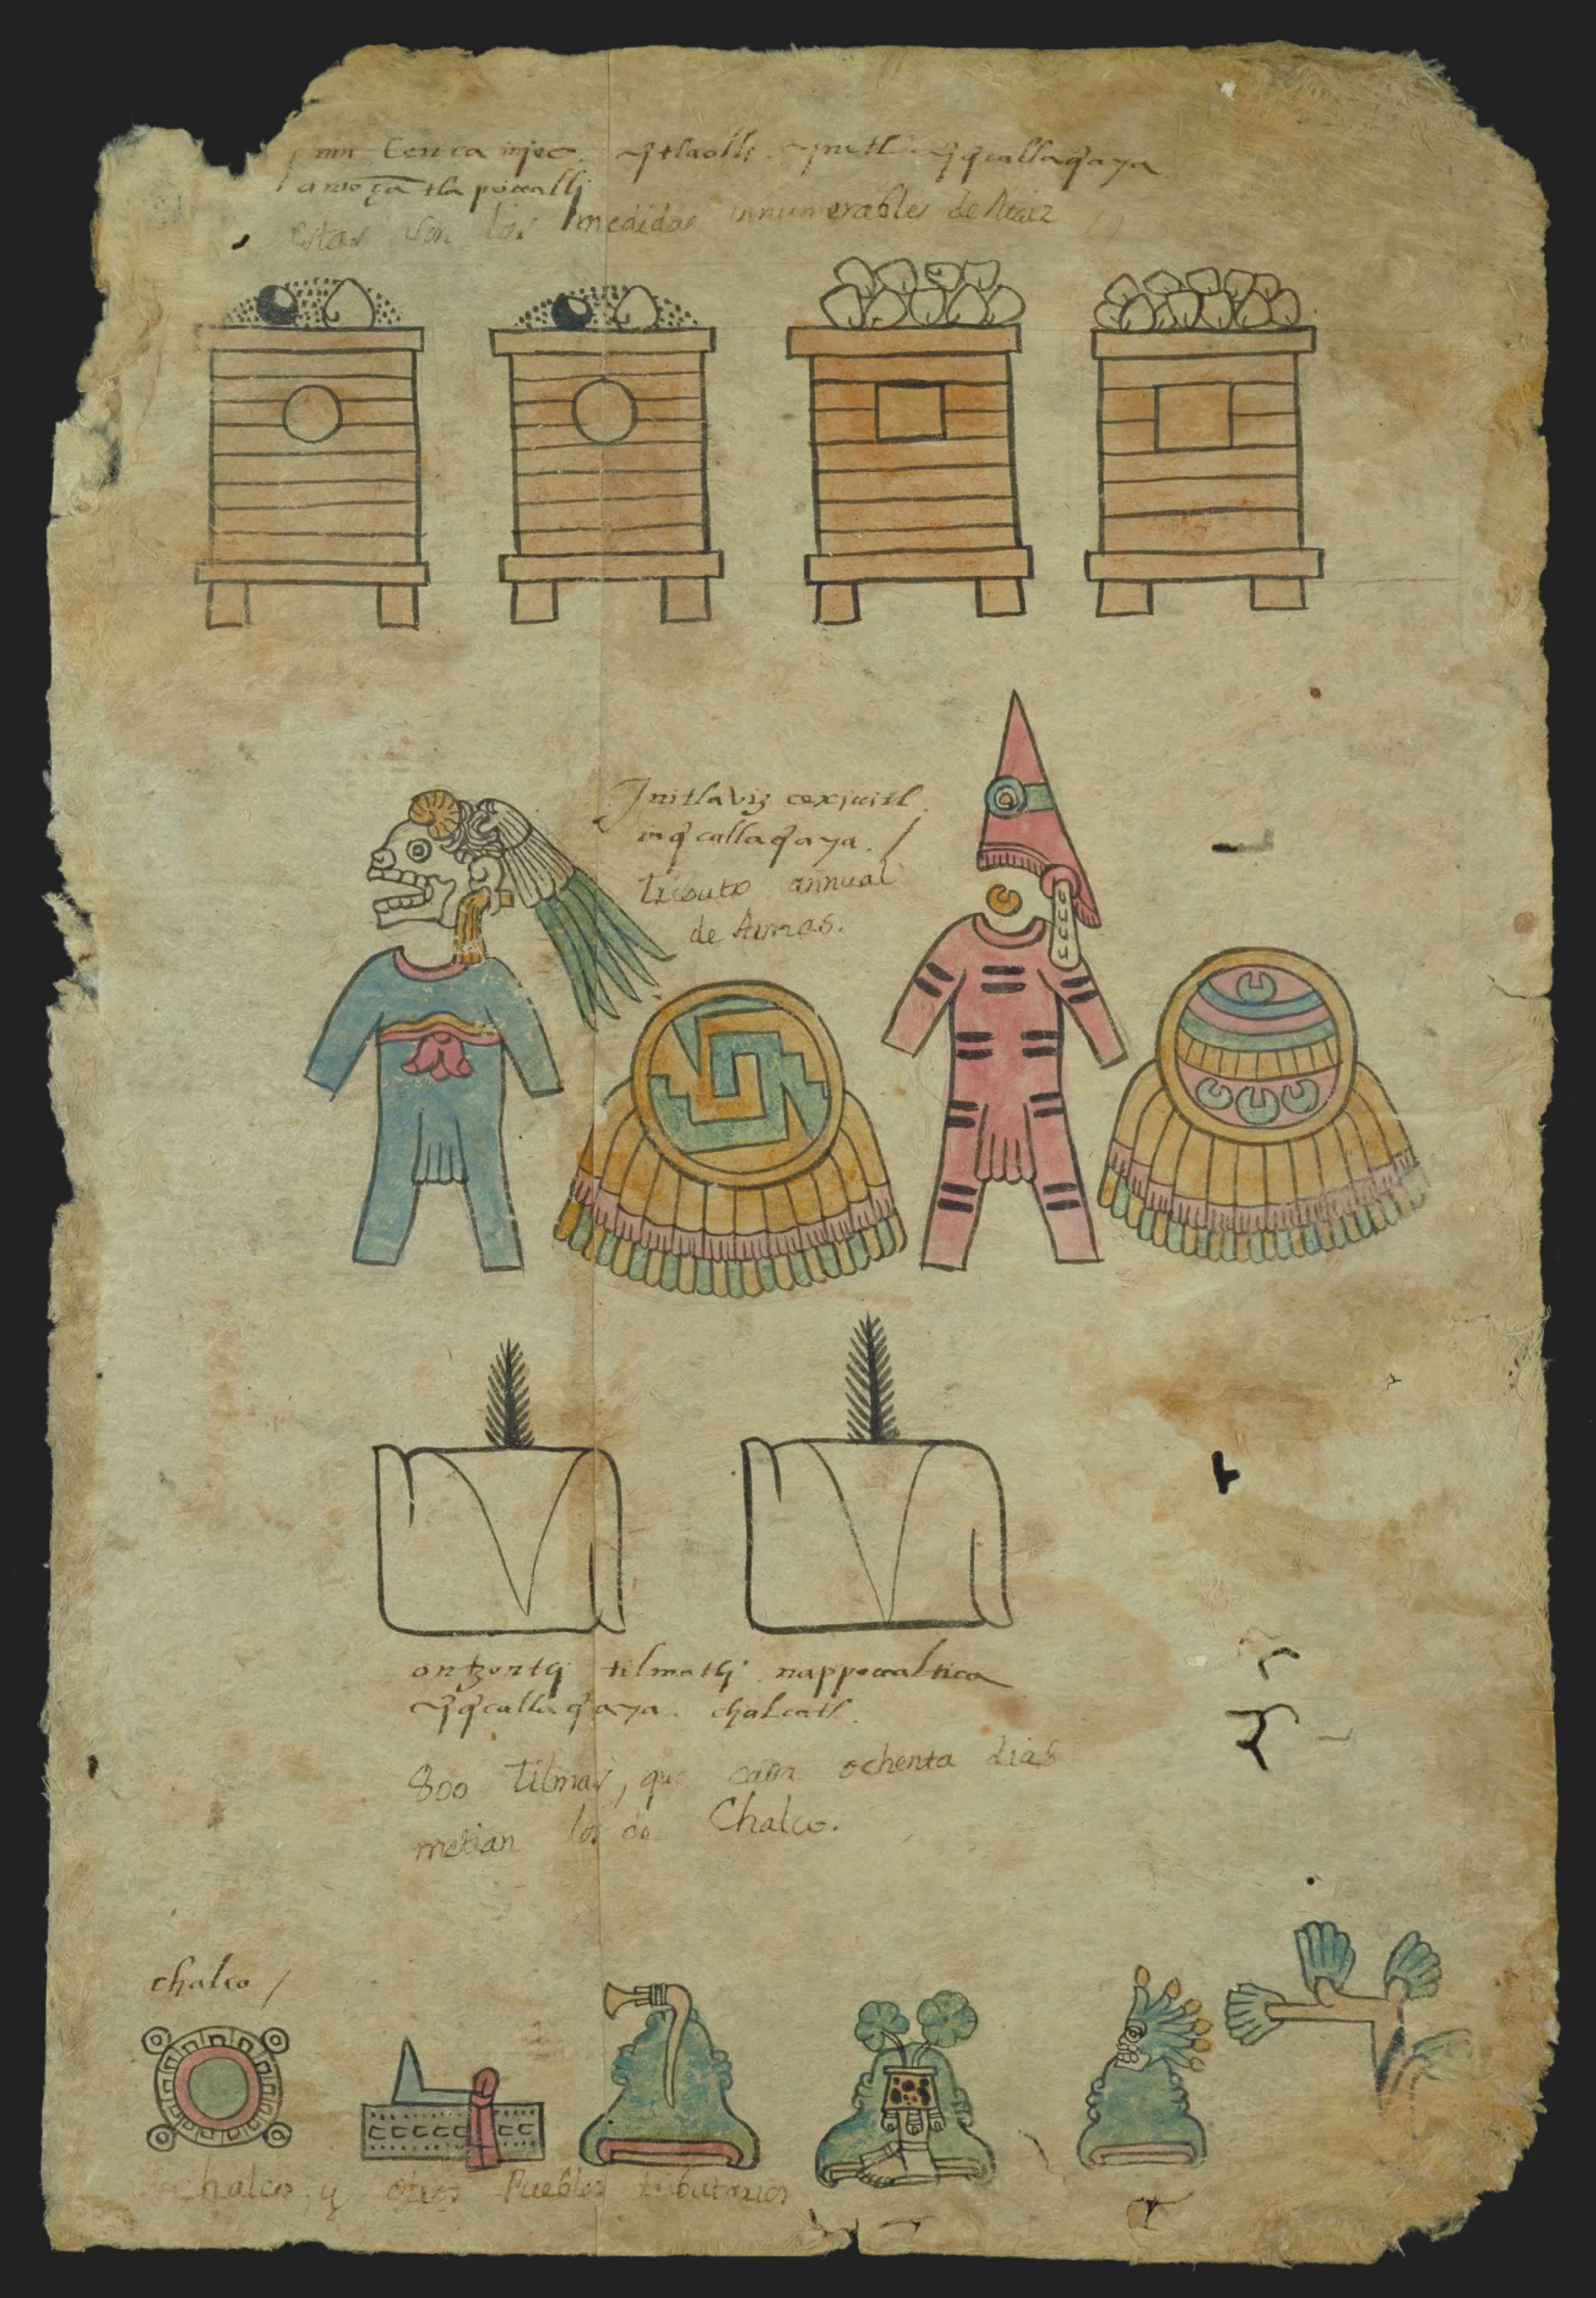 cenca mjec. yn tlaolli. ymetl. yn qcallaqaya
amo çā tlapoualli
estas son las medidas innumerables de Maiz
Jnitlaviz cexiuitl
in qcallaqaya. /
tributo annual
de Armas.
ontzontli tilmatli nappoualtica
yn qcallaqaya. chalcatl.
800 Tilmas, que cada ochenta dias
metian los de Chalco.
chalco /
chalco, y otros Pueblos tributarios